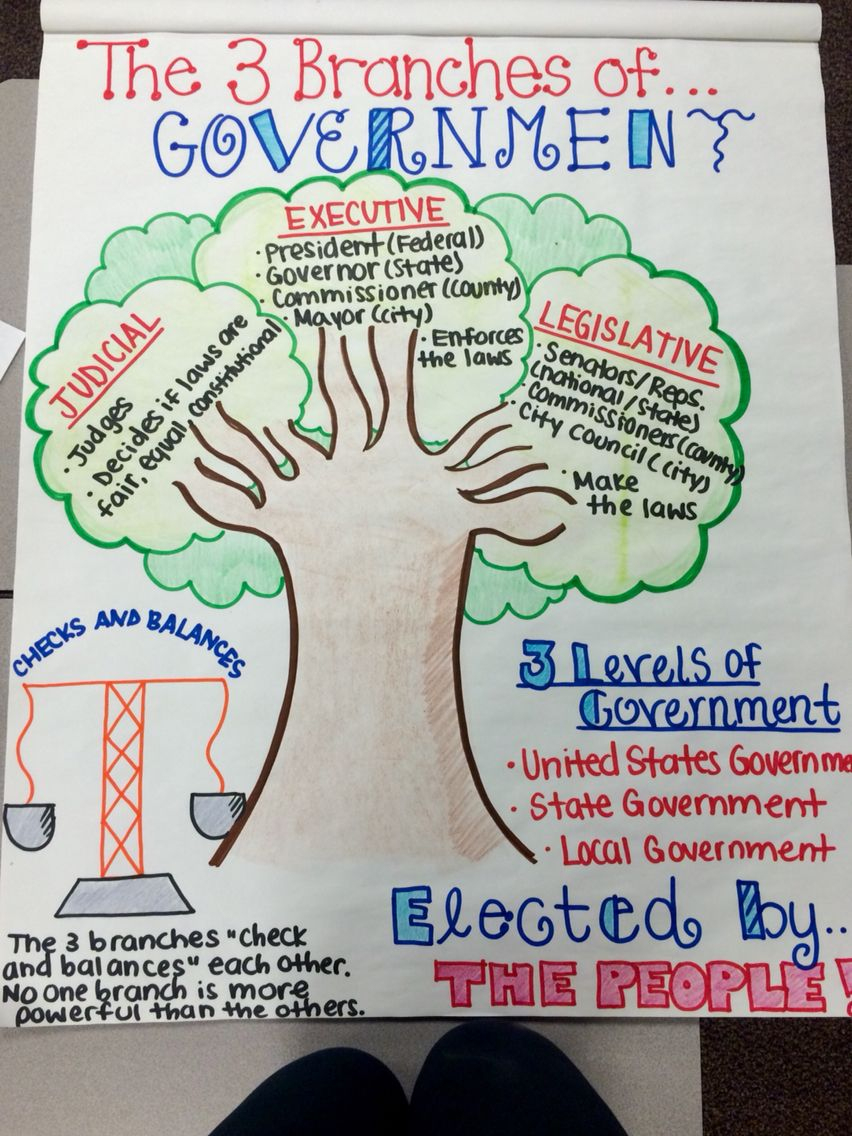 The 3 Branches of...
GOVERNMENT
EXECUTIVE
• President (Federal)
• Governor (State)
• Commissioner (county)
• Mayor (city)
• Enforces
the laws
JUDICIAL
• Judges
• Decides if laws are
fair, equal, constitutional
LEGISLATIVE
• Senators/Reps.
(national/State)
• Commissioners (county)
• City Council (city)
• Make
the laws
CHECKS AND BALANCES
3 Levels of
Government
• United States Governme
• State Government
• Local Government
The 3 branches "check
and balances" each other.
No one branch is more
powerful than the others.
Elected by...
THE PEOPLE!